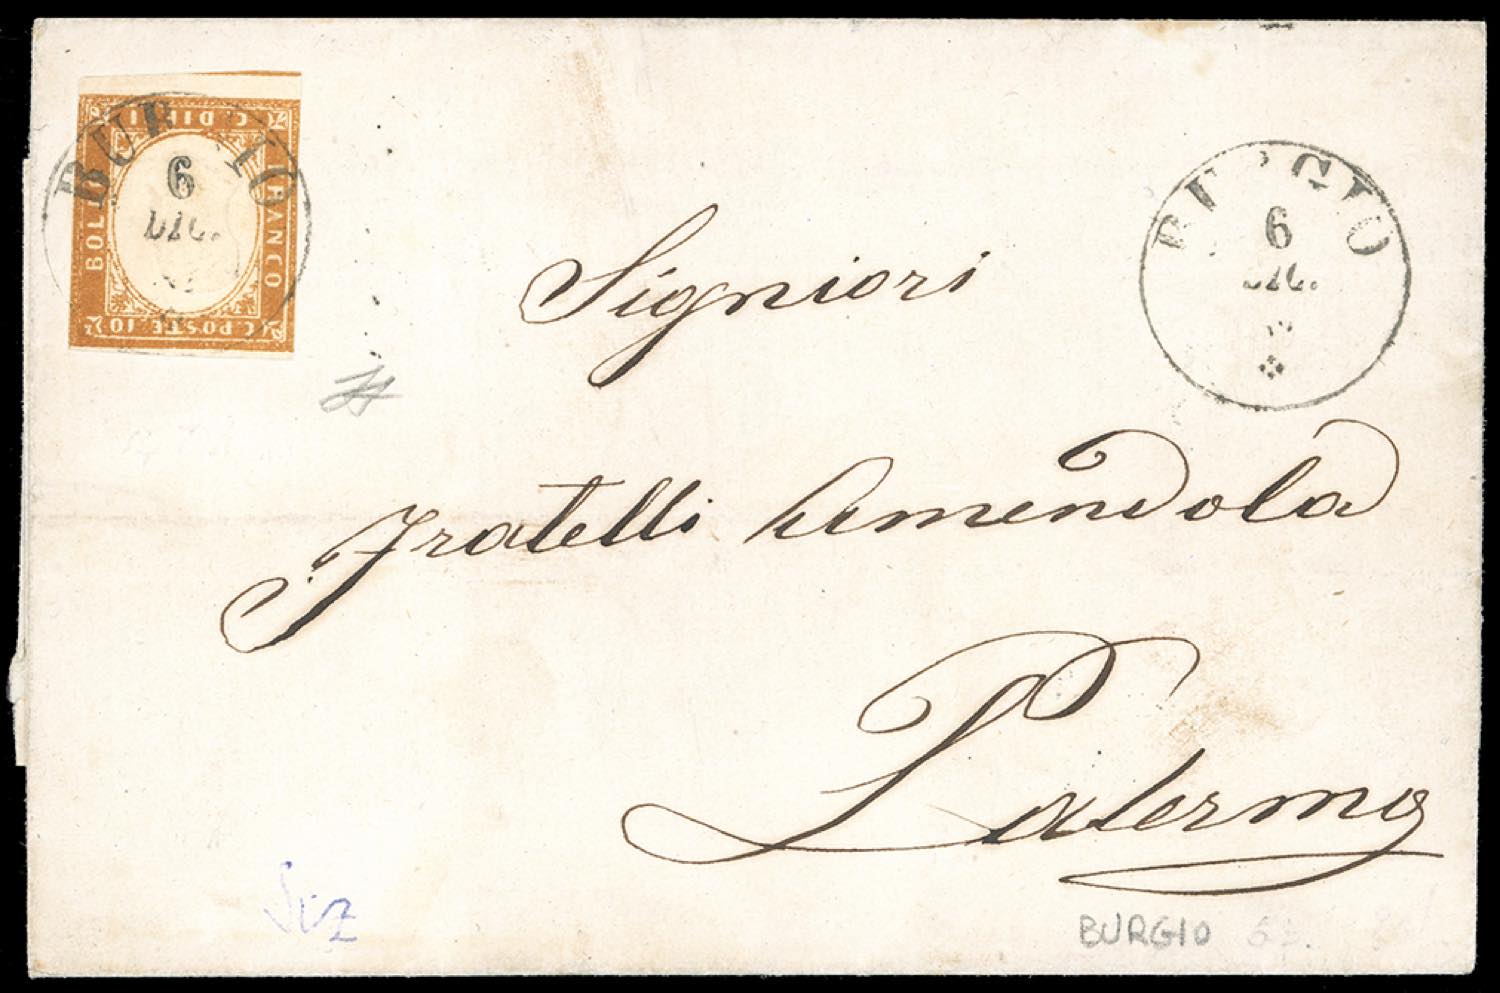 C. DIECI
BOLLO
FRANCO
C POSTE 10 C
BURGIO
6
DIC.
BURGIO
6
DIC.
Signiori
Fratelli Amendola
Palermo
BURGIO